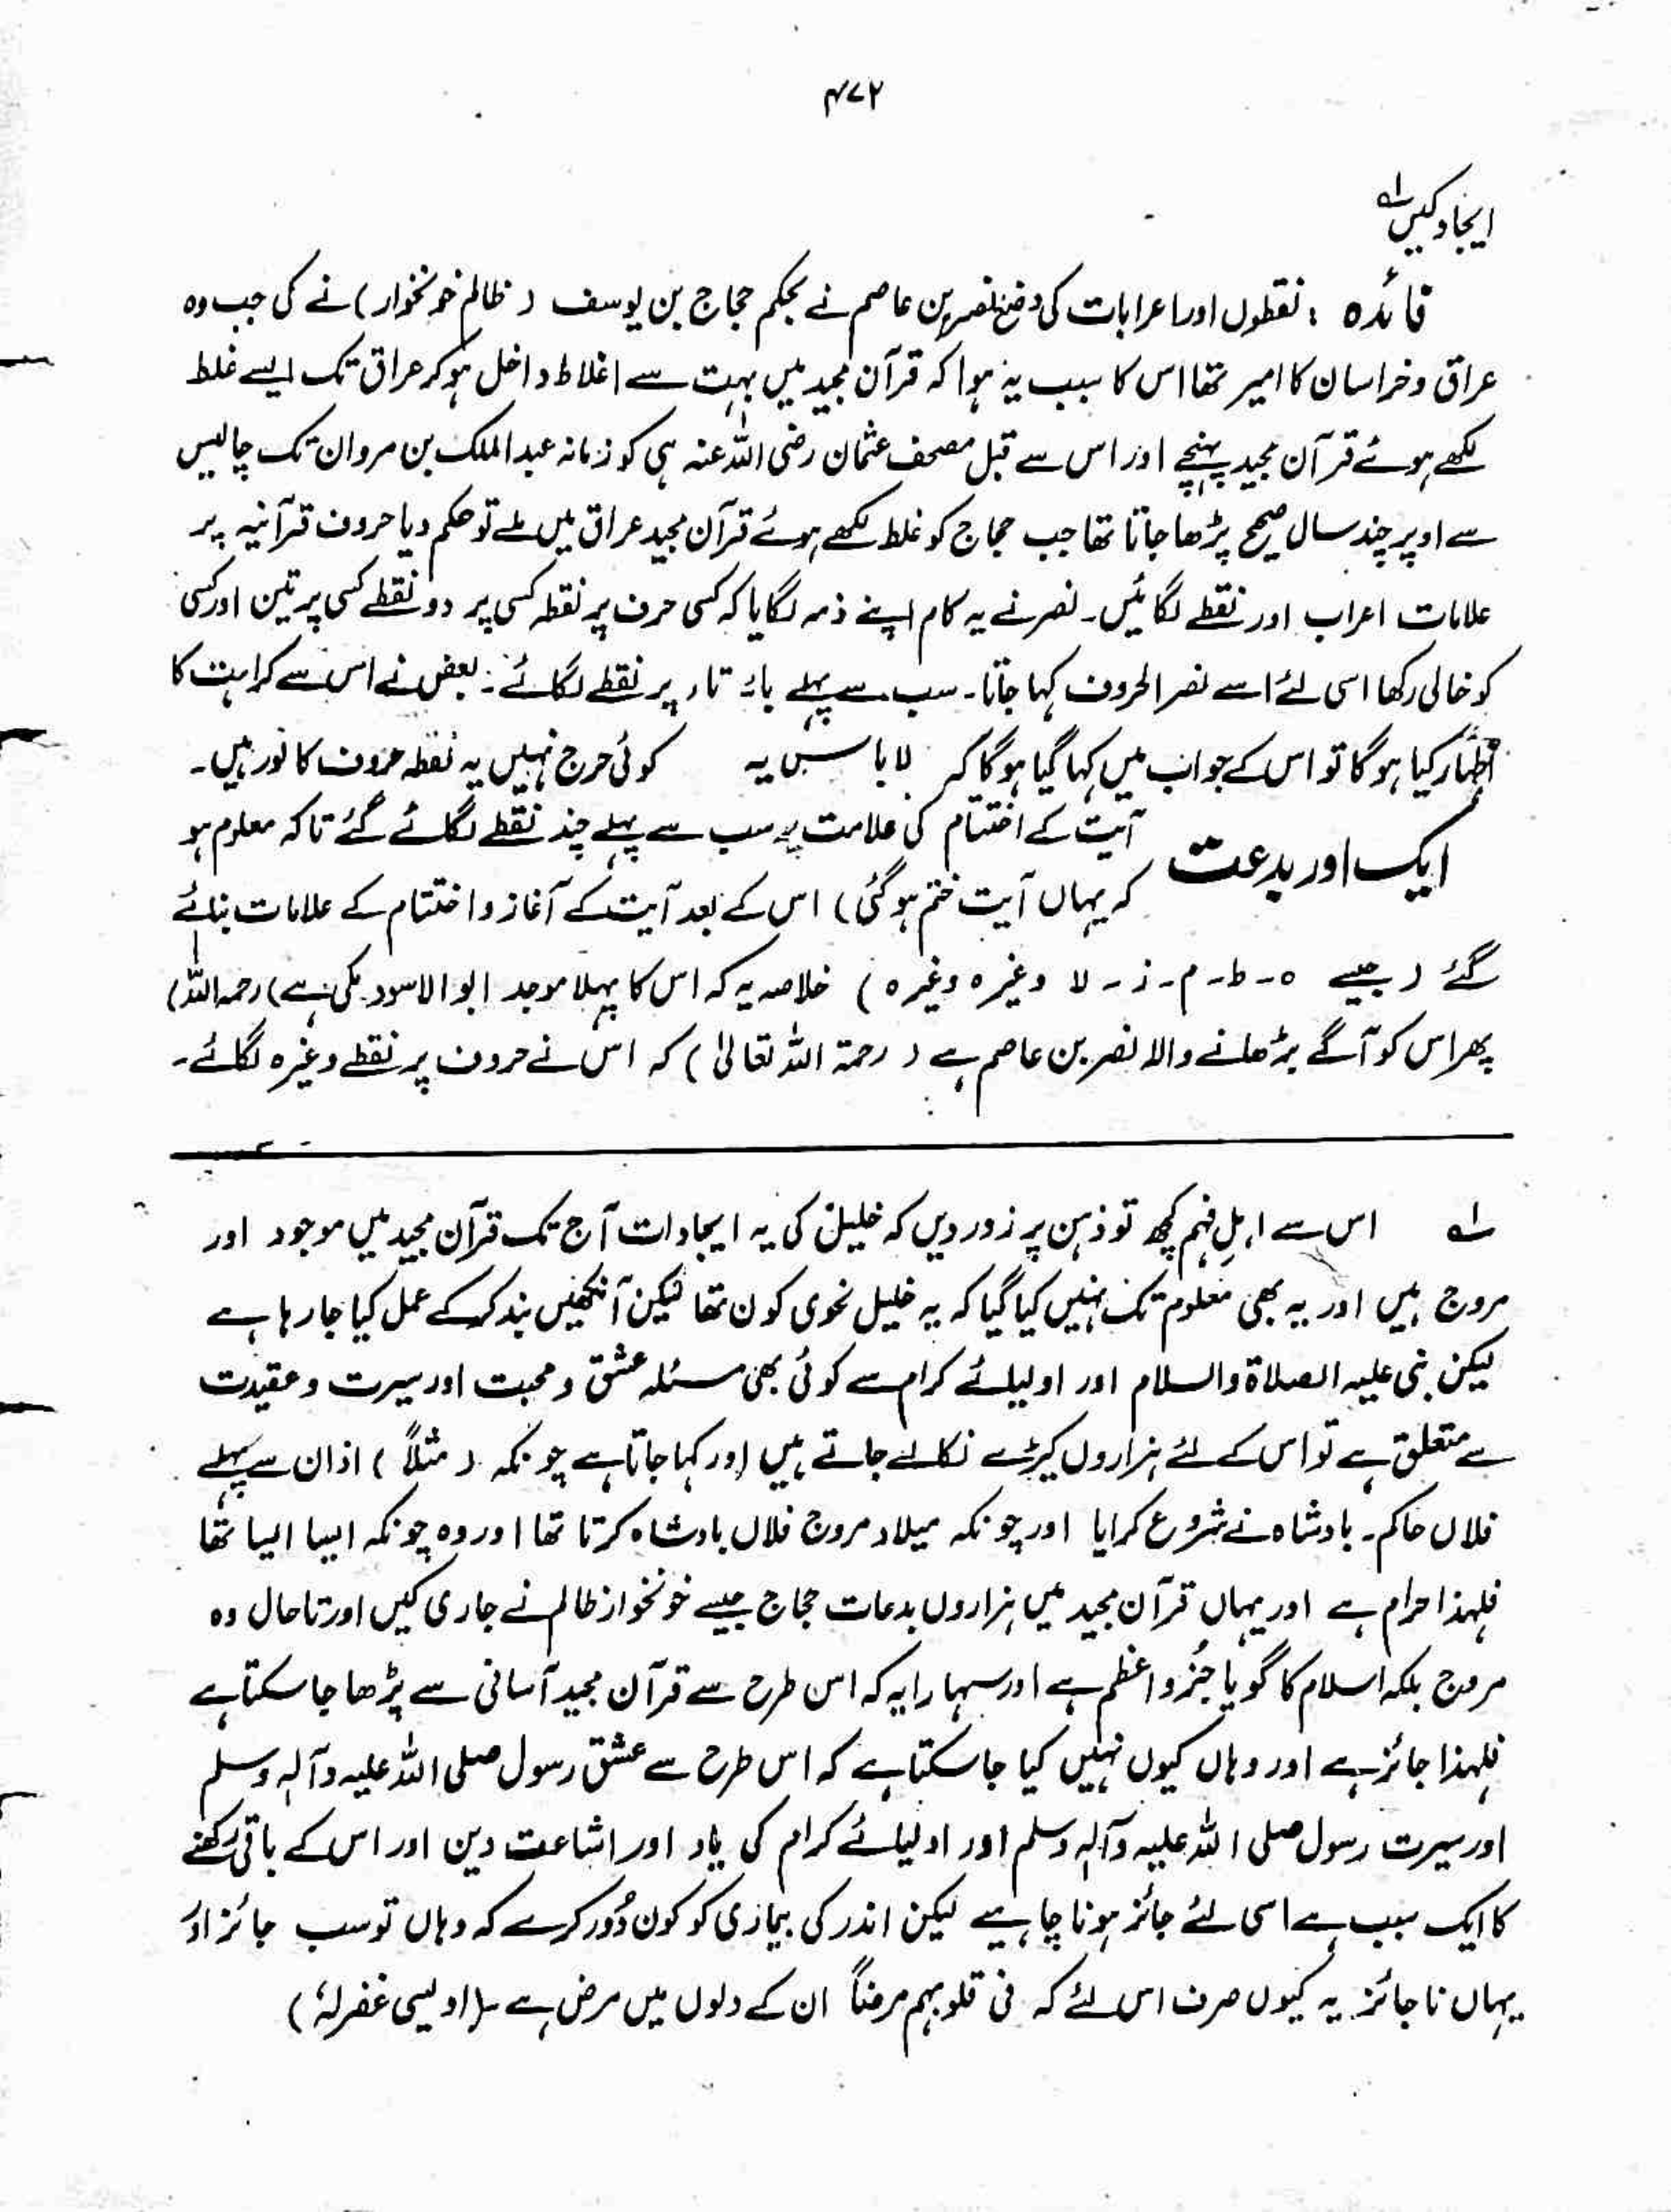 ۴۷۲
ایجاد کیں ؎۱
فائدہ : نقطوں اور اعرابات کی وضع نصر بن عاصم نے بحکم حجاج بن یوسف ( ظالم خونخوار ) نے کی جب وہ
عراق و خراسان کا امیر تھا اس کا سبب یہ ہوا کہ قرآن مجید میں بہت سے اغلاط داخل ہو کر عراق تک ایسے غلط
لکھے ہوئے قرآن مجید پہنچے اور اس سے قبل مصحف عثمان رضی اللہ عنہ ہی کو زمانہ عبد الملک بن مروان تک چالیس
سے اوپر چند سال صحیح پڑھا جاتا تھا جب حجاج کو غلط لکھے ہوئے قرآن مجید عراق میں ملے تو حکم دیا حروف قرآنیہ پر
علامات اعراب اور نقطے لگائیں۔ نصر نے یہ کام اپنے ذمہ لگایا کہ کسی حرف پر نقطہ کسی پر دو نقطے کسی پر تین اور کسی
کو خالی رکھا اسی لئے اسے نصر الحروف کہا جاتا۔ سب سے پہلے باء تاء پر نقطے لگائے۔ بعض نے اس سے کراہت کا
اظہار کیا ہوگا تو اس کے جواب میں کہا گیا ہوگا کہ لا باس بہ کوئی حرج نہیں یہ نقطہ حروف کا نور ہیں۔
ایک اور بدعت آیت کے اختتام کی علامت پر سب سے پہلے چند نقطے لگائے گئے تاکہ معلوم ہو
کہ یہاں آیت ختم ہوگئی ) اس کے بعد آیت کے آغاز و اختتام کے علامات بنائے
گئے ( جیسے ہ - ط - م - ز - لا وغیرہ وغیرہ ) خلاصہ یہ کہ اس کا پہلا موجد ابو الاسود مکی ہے ) رحمہ اللہ )
پھر اس کو آگے بڑھانے والا نصر بن عاصم ہے ( رحمۃ اللہ تعالیٰ ) کہ اس نے حروف پر نقطے وغیرہ لگائے۔
؎۱ اس سے اہلِ فہم کچھ تو ذہن پر زور دیں کہ خلیل کی یہ ایجادات آج تک قرآن مجید میں موجود اور
مروج ہیں اور یہ بھی معلوم تک نہیں کیا گیا کہ یہ خلیل نحوی کون تھا لیکن آنکھیں بند کرکے عمل کیا جا رہا ہے
لیکن نبی علیہ الصلاۃ والسلام اور اولیائے کرام سے کوئی بھی مسئلہ عشق و محبت اور سیرت و عقیدت
سے متعلق ہے تو اس کے لئے ہزاروں کیڑے نکالے جاتے ہیں اور کہا جاتا ہے چونکہ ( مثلاً ) اذان سے پہلے
فلاں حاکم۔ بادشاہ نے شروع کرایا اور چونکہ میلاد مروج فلاں بادشاہ کرتا تھا اور وہ چونکہ ایسا ایسا تھا
فلہذا حرام ہے اور یہاں قرآن مجید میں ہزاروں بدعات حجاج جیسے خونخوار ظالم نے جاری کیں اور تا حال وہ
مروج بلکہ اسلام کا گویا جُزو اعظم ہے اور سہارا یہ کہ اس طرح سے قرآن مجید آسانی سے پڑھا جا سکتا ہے
فلہذا جائز ہے اور وہاں کیوں نہیں کیا جا سکتا ہے کہ اس طرح سے عشق رسول صلی اللہ علیہ وآلہٖ وسلم
اور سیرت رسول صلی اللہ علیہ وآلہٖ وسلم اور اولیائے کرام کی یاد اور اشاعت دین اور اس کے باقی رکھنے
کا ایک سبب ہے اسی لئے جائز ہونا چاہیے لیکن اندر کی بیماری کو کون دُور کرے کہ وہاں تو سب جائز اور
یہاں ناجائز یہ کیوں صرف اس لئے کہ فی قلوبہم مرضاً ان کے دلوں میں مرض ہے ۔ ( اویسی غفرلہٗ )